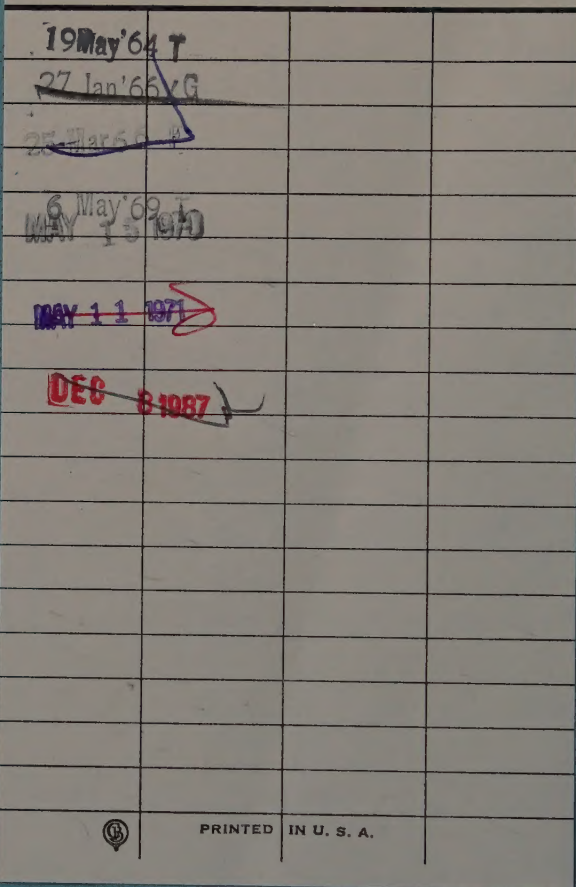 19May'64 T
27 Jan'66 G
25 Mar 6
6 May'69 T
MAY 1 1970
MAY 1 1 1971
DEC 8 1987
PRINTED IN U. S. A.